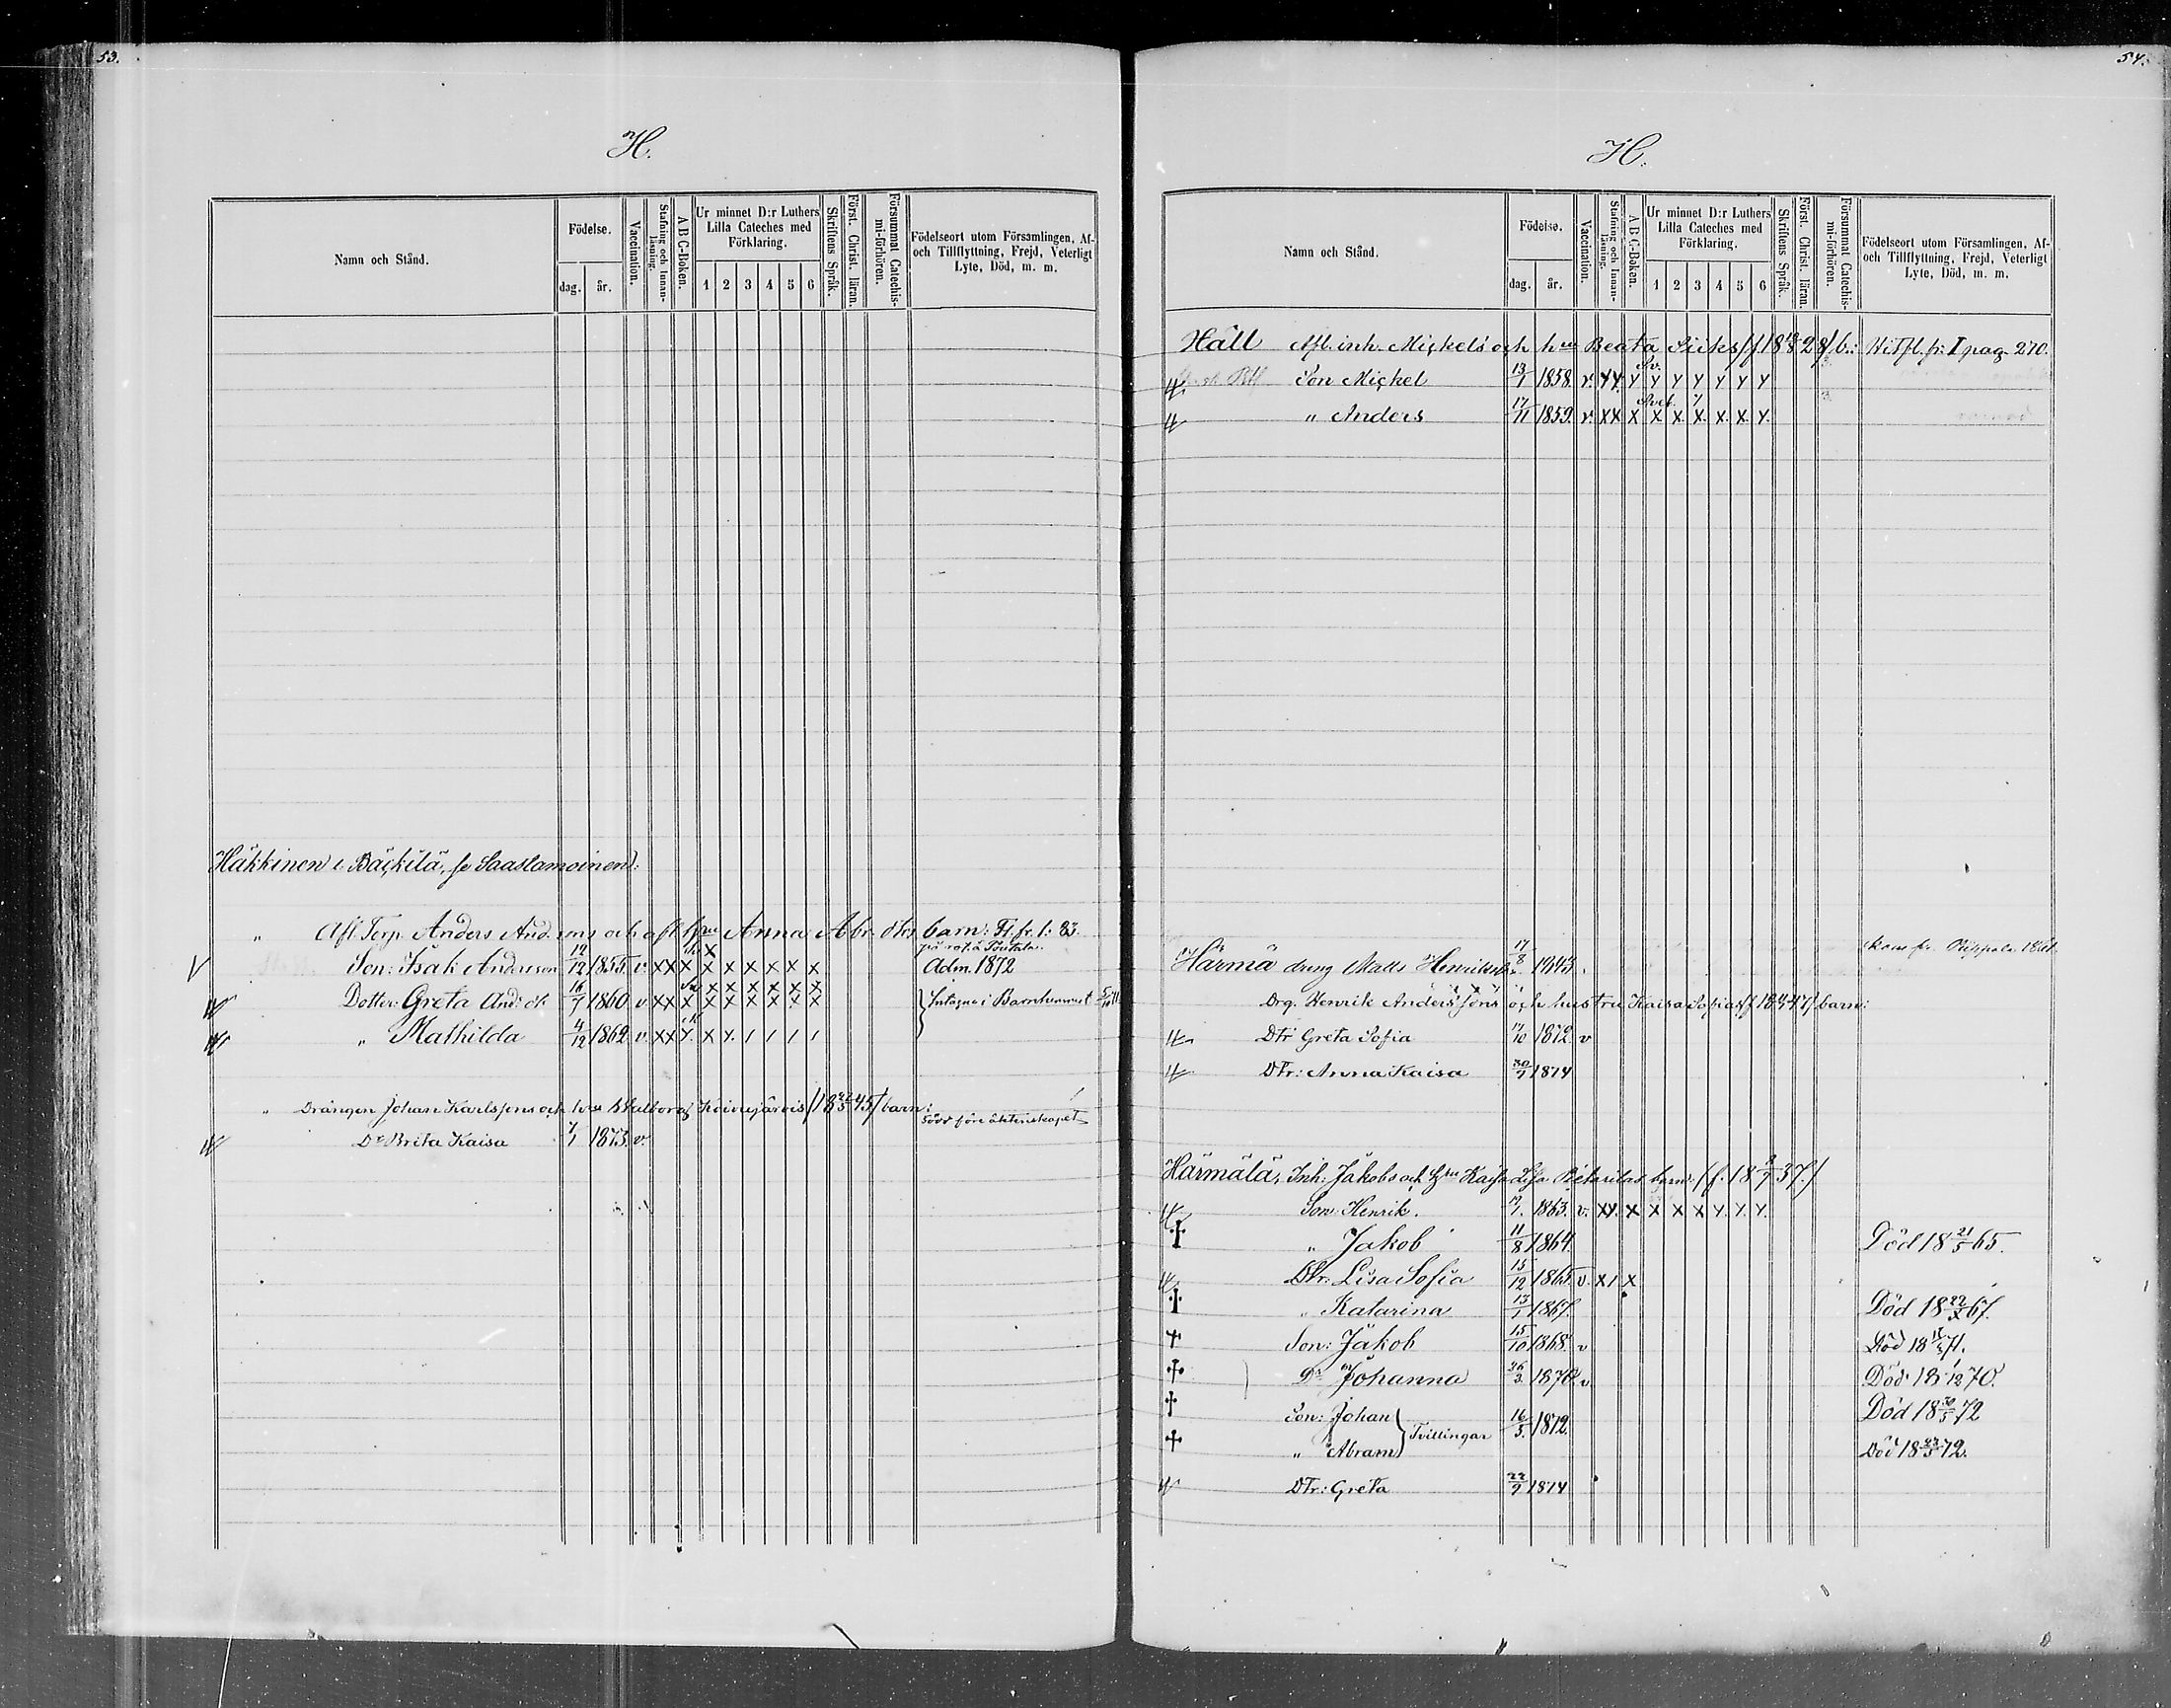 53.
H.
Namn och Stånd.
Födelse.
dag.
år.
Vaccination.
Stafning och Innanläsning.
A B C-Boken.
Ur minnet D:r Luthers
Lilla Cateches med
Förklaring.
1 2 3 4 5 6
Skriftens Språk.
Först. Christ. läran.
Försummat Catechismi-förhören.
Födelseort utom Församlingen, Af-
och Tillflyttning, Frejd, Veterligt
Lyte, Död, m. m.
Häkkinen i Bäckilä, se Saastamoinen:
" Afl. Torp. Anders And. sons och afl. hru Anna Abr. dtrs barn: Fl. fr. 1: 83.
Son: Isak Andersson 12/12 1855. v. X X X X X X X X X Adm. 1872
Dotter: Greta And. dr 16/7 1860 v X X X X X X X X X
" Mathilda 4/12 1862 v. X X Y. X Y. / / / /
" Drängen Johan Karlssons och hru Walborg Koivujärvis /18 45/ barn:
född före äktenskapet
Dr Brita Kaisa 7/1 1873. v.
54.
H.
Namn och Stånd.
Födelse.
dag.
år.
Vaccination.
Stafning och Innanläsning.
A B C-Boken.
Ur minnet D:r Luthers
Lilla Cateches med
Förklaring.
1 2 3 4 5 6
Skriftens Språk.
Först. Christ. läran.
Försummat Catechismi-förhören.
Födelseort utom Församlingen, Af-
och Tillflyttning, Frejd, Veterligt
Lyte, Död, m. m.
Häll Afl. inh. Mickels och hru Beata b.: Hitfl. fr. I pag. 270.
Son Mickel 13/1 1858. v. Y Y. Y Y Y Y Y Y Y
" Anders 17/11 1859. v. X X X X X. X. X. X. Y.
Härmä dreng Matts 17/8 1843.
Drg. Henrik Anderssons och hustru Kaisa Sofias barn:
Dtr Greta Sofia 17/10 1872. v
Dtr: Anna Kaisa 30/7 1874
Härmälä, Inh: Jakobs och hru Kajsa Lisa barn: (f. 18 2/7 37.)
Son Henrik. 1863. v. X Y. X X X X Y. Y. Y.
" Jakob 11/8 1864. Död 18 21/5 65.
Dtr. Lisa Sofia 15/12 1865. v. X / X
" Katarina 13/1 1867. Död 18 67.
Son: Jakob 15/10 1868. v Död 18 71.
Dr Johanna 26/3 1870 v. Död 18 1/12 70.
Son: Johan } Tvillingar 16/5. 1872. Död 18 30/5 72
" Abram Död 18 23/5 72.
Dtr: Greta 22/7 1874